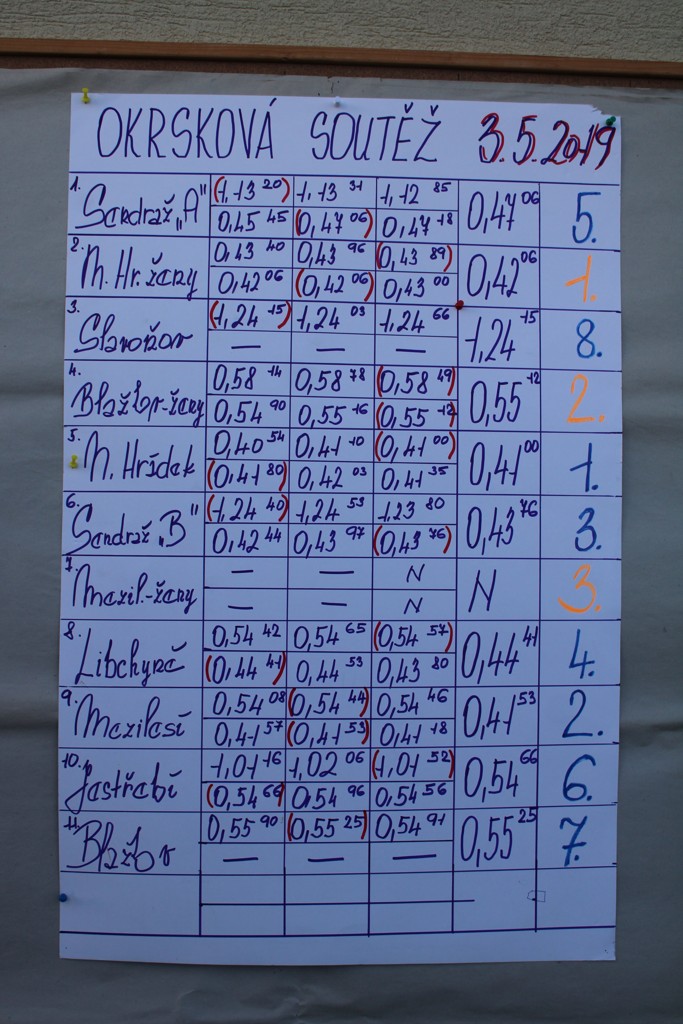 OKRSKOVÁ SOUTĚŽ 3.5.2019
1. Sendraž „A" (1,13 20) 1,13 31 1,12 85 0,47 06 5.
0,45 45 (0,47 06) 0,47 18
2. M. Hr. ženy 0,43 40 0,43 96 (0,43 89) 0,42 06 1.
0,42 06 (0,42 06) 0,43 00
3. Slavoňov (1,24 15) 1,24 03 1,24 66 1,24 15 8.
— — —
4. Blažkov-ženy 0,58 14 0,58 78 (0,58 49) 0,55 12 2.
0,54 90 0,55 16 (0,55 12)
5. M. Hrádek 0,40 54 0,41 10 (0,41 00) 0,41 00 1.
(0,41 80) 0,42 03 0,41 35
6. Sendraž „B" (1,24 40) 1,24 53 1,23 80 0,43 76 3.
0,42 44 0,43 97 (0,43 76)
7. Mezil.-ženy — — N N 3.
— — N
8. Libchyně 0,54 42 0,54 65 (0,54 57) 0,44 41 4.
(0,44 41) 0,44 53 0,43 80
9. Mezilesí 0,54 08 (0,54 44) 0,54 46 0,41 53 2.
0,41 57 (0,41 53) 0,41 18
10. Jestřebí 1,01 16 1,02 06 (1,01 52) 0,54 66 6.
(0,54 66) 0,54 96 0,54 56
11. Blažkov 0,55 90 (0,55 25) 0,54 91 0,55 25 7.
— — —